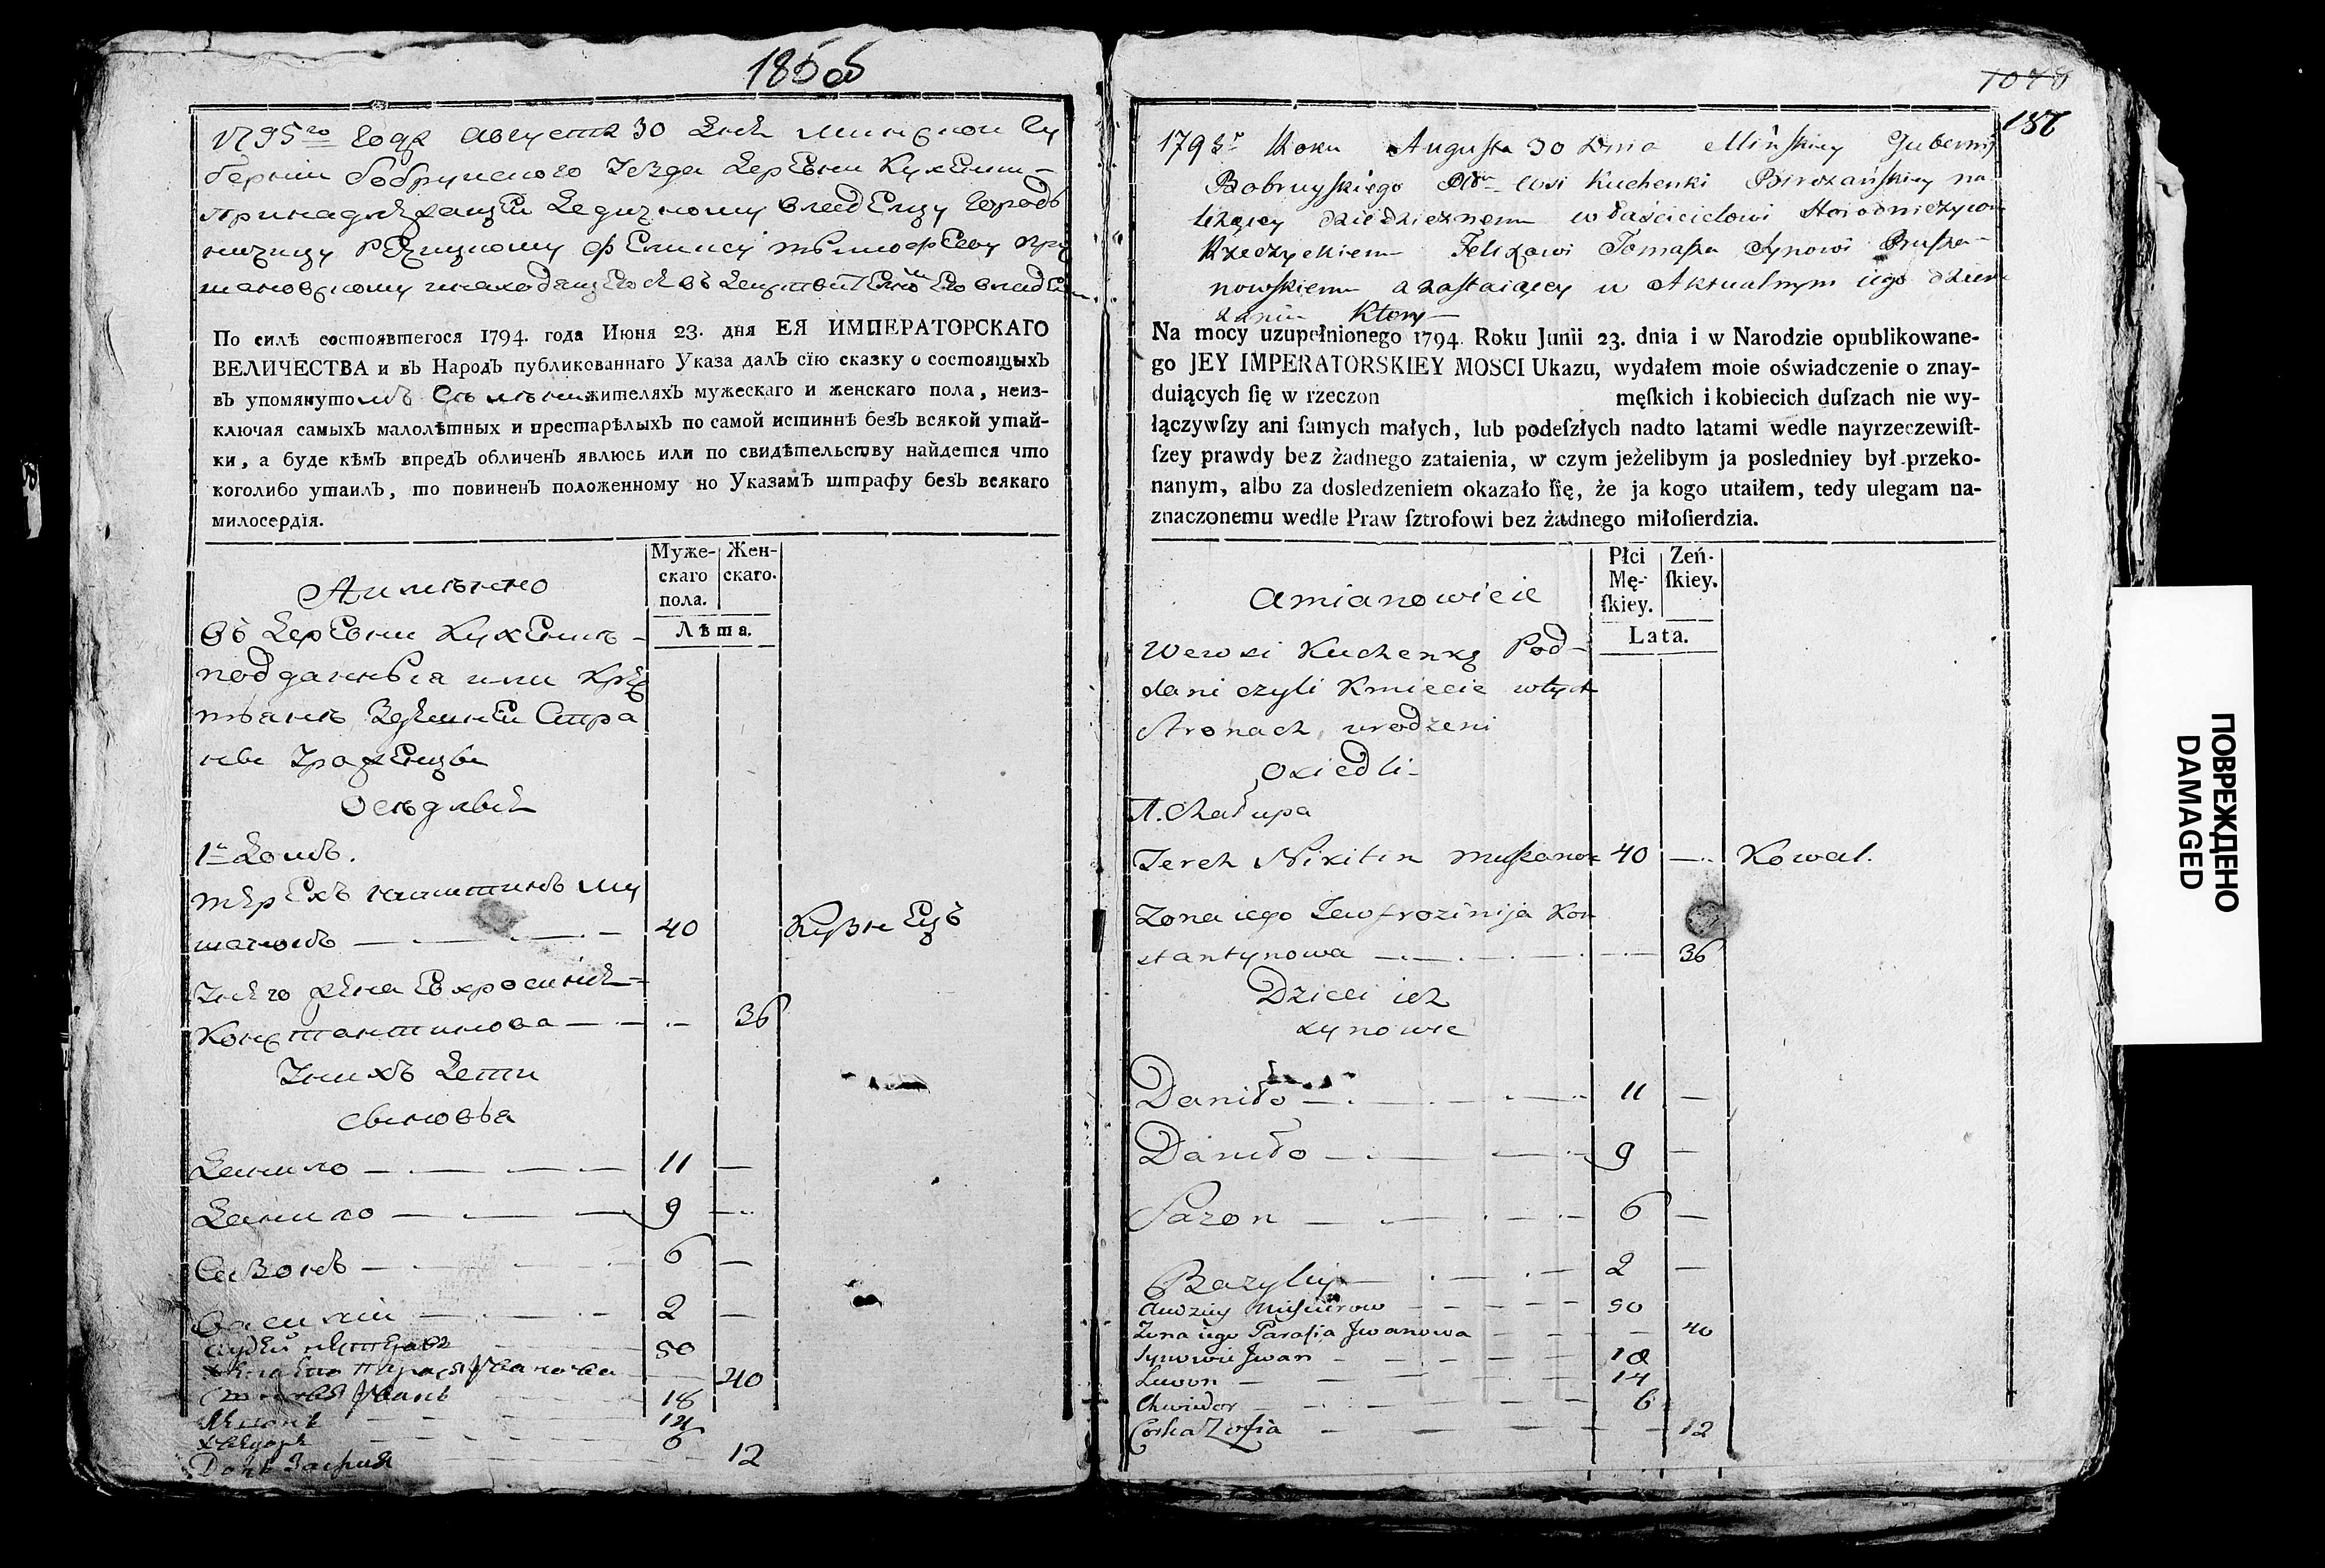 185об
1795го Года Августа 30 Дня Минской Гу
бернии Бобруйского Уезда Деревни Кухенки
принадлежащей Дедичному владелцу Город
ничому Речицкому Феликсу Тымофееву Пру
шановскому находящегося въ Действителном Его владе
По силѣ состоявшегося 1794. года Июня 23. дня ЕЯ ИМПЕРАТОРСКАГО
ВЕЛИЧЕСТВА и въ Народъ публикованнаго Указа далъ сїю сказку о состоящыхъ
въ упомянутомъ жителяхъ мужескаго и женскаго пола, неиз-
ключая самыхъ малолѣтныхъ и престарѣлыхъ по самой истиннѣ безъ всякой утай-
ки, а буде кѣмъ впредъ обличенъ явлюсь или по свидѣтельству найдется что
коголибо утаилъ, то повиненъ положенному по Указамъ штрафу безъ всякаго
милосердїя.
Муже-
скаго
пола.
Жен-
скаго.
Лѣта.
Аимянно
Въ Деревни Кухенкѣ
подданныя или Крес
тьянѣ Здешней Стра
ны Урожинцы
Оседлыя
1й Домъ.
Терехъ Никитинъ Му
шановъ 40 Кузнецъ
Унего жена Евхросиния
Константинова 36
Унихъ Дети
сыновья
Данило 11 —
Данило 9 —
Сазонъ 6 —
Василий 2 —
Авдей 50
жена его Парася Иванова 40
Иванъ 18
Левонъ 14
Хведоръ 6
Дочь Зофия 12
1078
186
1795г Roku Augusta 30 Dnia Mińskiey Gubernii
Bobruyskiego Wsi Kuchenki na
leżącey dziedzicznemu właścicielowi Horodniczemu
Rzeczyckiemu Felixowi Tomasza Synowi Prusza-
nowskiemu a zostaiącey w Aktualnym iego dzier
żaniu Ktory
Na mocy uzupełnionego 1794. Roku Junii 23. dnia i w Narodzie opublikowane-
go JEY IMPERATORSKIEY MOSCI Ukazu, wydałem moie oświadczenie o znay-
duiących ſię w rzeczon męſkich i kobiecich duſzach nie wy-
łączywſzy ani ſamych małych, lub podeſzłych nadto latami wedle nayrzeczewiſt-
ſzey prawdy bez żadnego zataienia, w czym jeżelibym ja posledniey był przeko-
nanym, albo za dosledzeniem okazało ſię, że ja kogo utaiłem, tedy ulegam na-
znaczonemu wedle Praw ſztrofowi bez żadnego miłoſierdzia.
Płci
Mę-
ſkiey.
Zeń-
ſkiey.
Lata.
Amianowicie
Wewsi Kuchenkę Pod-
dani czyli Kmiecie wtych
Stronach urodzeni
Osiedli
1. Chałupa
Terech Nikitin Muszanow 40 — Kowal.
Zona iego Jewfrozinija Kon
stantynowa 36
Dzieci ich
synowie
Daniło 11 —
Daniło 9 —
Sazon 6 —
Bazyli 2 —
Audziey 50
Zona iego Parasia Jwanowa 40
Synowie Jwan 18
Lewon 14
Chwiedor 6
Corka Zofia 12
ПОВРЕЖДЕНО
DAMAGED